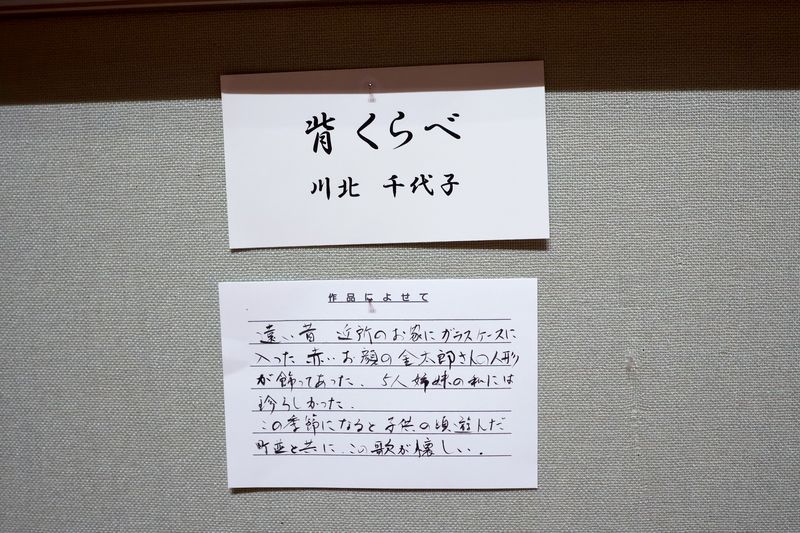 背くらべ
川北 千代子
作品によせて
遠い昔 近所のお家にガラスケースに
入った 赤いお顔の金太郎さんの人形
が飾ってあった、5人姉妹の私には
珍らしかった、
この季節になると子供の頃遊んだ
町並と共に、この歌が懐しい。